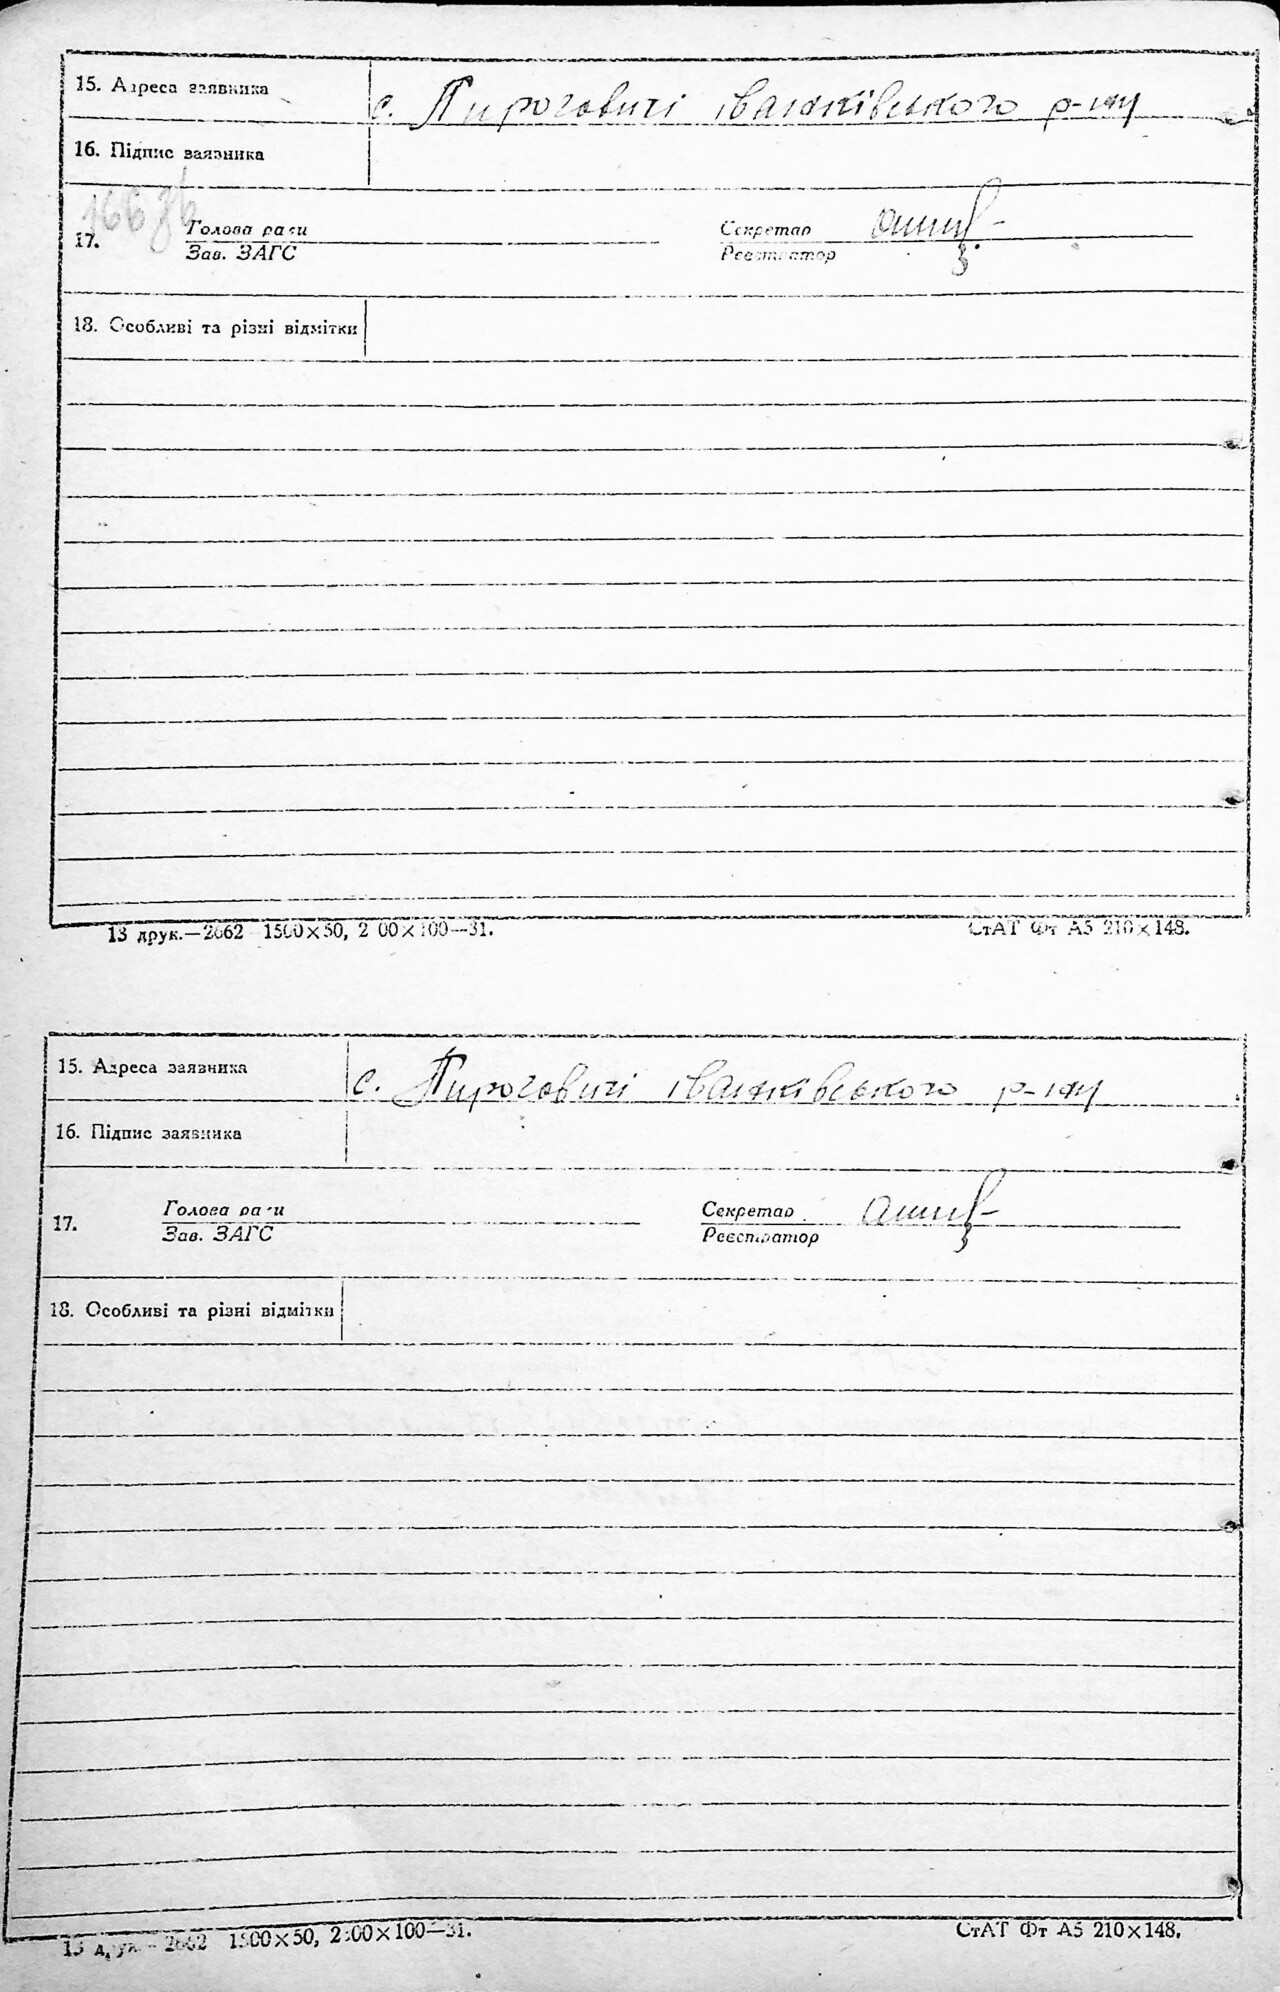 15. Адреса заявника с. Пироговичі іванківського р-ну
16. Підпис заявника
16636
17. Голова ради Секретар
Зав. ЗАГС Реєстратор
18. Особливі та різні відмітки
13 друк.—2662 1500×50, 2 00×100—31. СтАТ Фт А5 210×148.
15. Адреса заявника с. Пироговичі іванківського р-ну
16. Підпис заявника
17. Голова ради Секретар
Зав. ЗАГС Реєстратор
18. Особливі та різні відмітки
13 друк.—2662 1500×50, 2 00×100—31. СтАТ Фт А5 210×148.